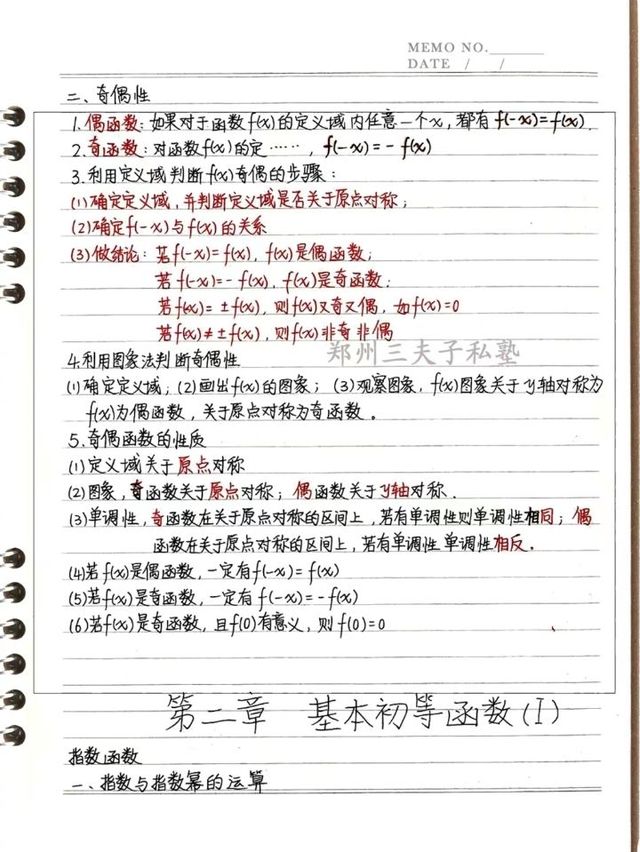 MEMO NO.
DATE / /
二、奇偶性
1.偶函数:如果对于函数f(x)的定义域内任意一个x,都有f(-x)=f(x).
2.奇函数:对函数f(x)的定……,f(-x)=-f(x)
3.利用定义域判断f(x)奇偶的步骤:
(1)确定定义域,并判断定义域是否关于原点对称;
(2)确定f(-x)与f(x)的关系
(3)做结论:若f(-x)=f(x),f(x)是偶函数;
若f(-x)=-f(x),f(x)是奇函数;
若f(x)=±f(x),则f(x)又奇又偶,如f(x)=0
若f(x)≠±f(x),则f(x)非奇非偶
郑州三夫子私塾
4.利用图象法判断奇偶性
(1)确定定义域;(2)画出f(x)的图象;(3)观察图象,f(x)图象关于y轴对称为
f(x)为偶函数,关于原点对称为奇函数。
5.奇偶函数的性质
(1)定义域关于原点对称
(2)图象,奇函数关于原点对称;偶函数关于y轴对称.
(3)单调性,奇函数在关于原点对称的区间上,若有单调性则单调性相同;偶
函数在关于原点对称的区间上,若有单调性单调性相反。
(4)若f(x)是偶函数,一定有f(-x)=f(x)
(5)若f(x)是奇函数,一定有f(-x)=-f(x)
(6)若f(x)是奇函数,且f(0)有意义,则f(0)=0
第二章 基本初等函数(I)
指数函数
一、指数与指数幂的运算